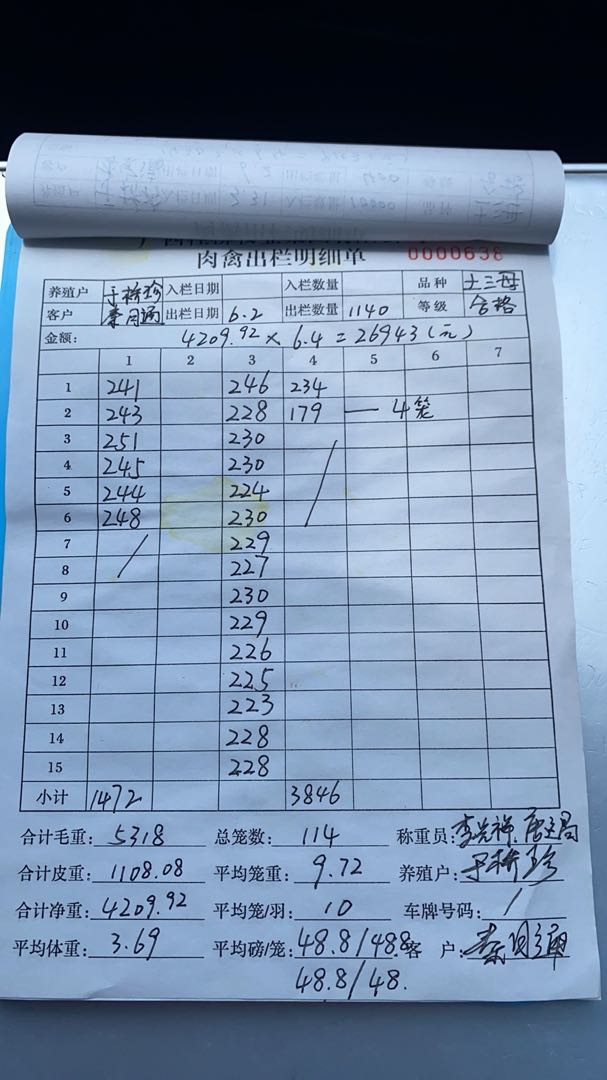 肉禽出栏明细单 0000638
养殖户 入栏日期 入栏数量 品种 土三母
客户 出栏日期 6.2 出栏数量 1140 等级 合格
金额: 4209.92 × 6.4 = 26943 (元)
1 2 3 4 5 6 7
1 241 246 234
2 243 228 179 — 4笼
3 251 230
4 245 230
5 244 224
6 248 230
7 229
8 227
9 230
10 229
11 226
12 225
13 223
14 228
15 228
小计 1472 3846
合计毛重: 5318 总笼数: 114 称重员:
合计皮重: 1108.08 平均笼重: 9.72 养殖户:
合计净重: 4209.92 平均笼/羽: 10 车牌号码: /
平均体重: 3.69 平均磅/笼: 48.8/48.8 客户:
48.8/48.